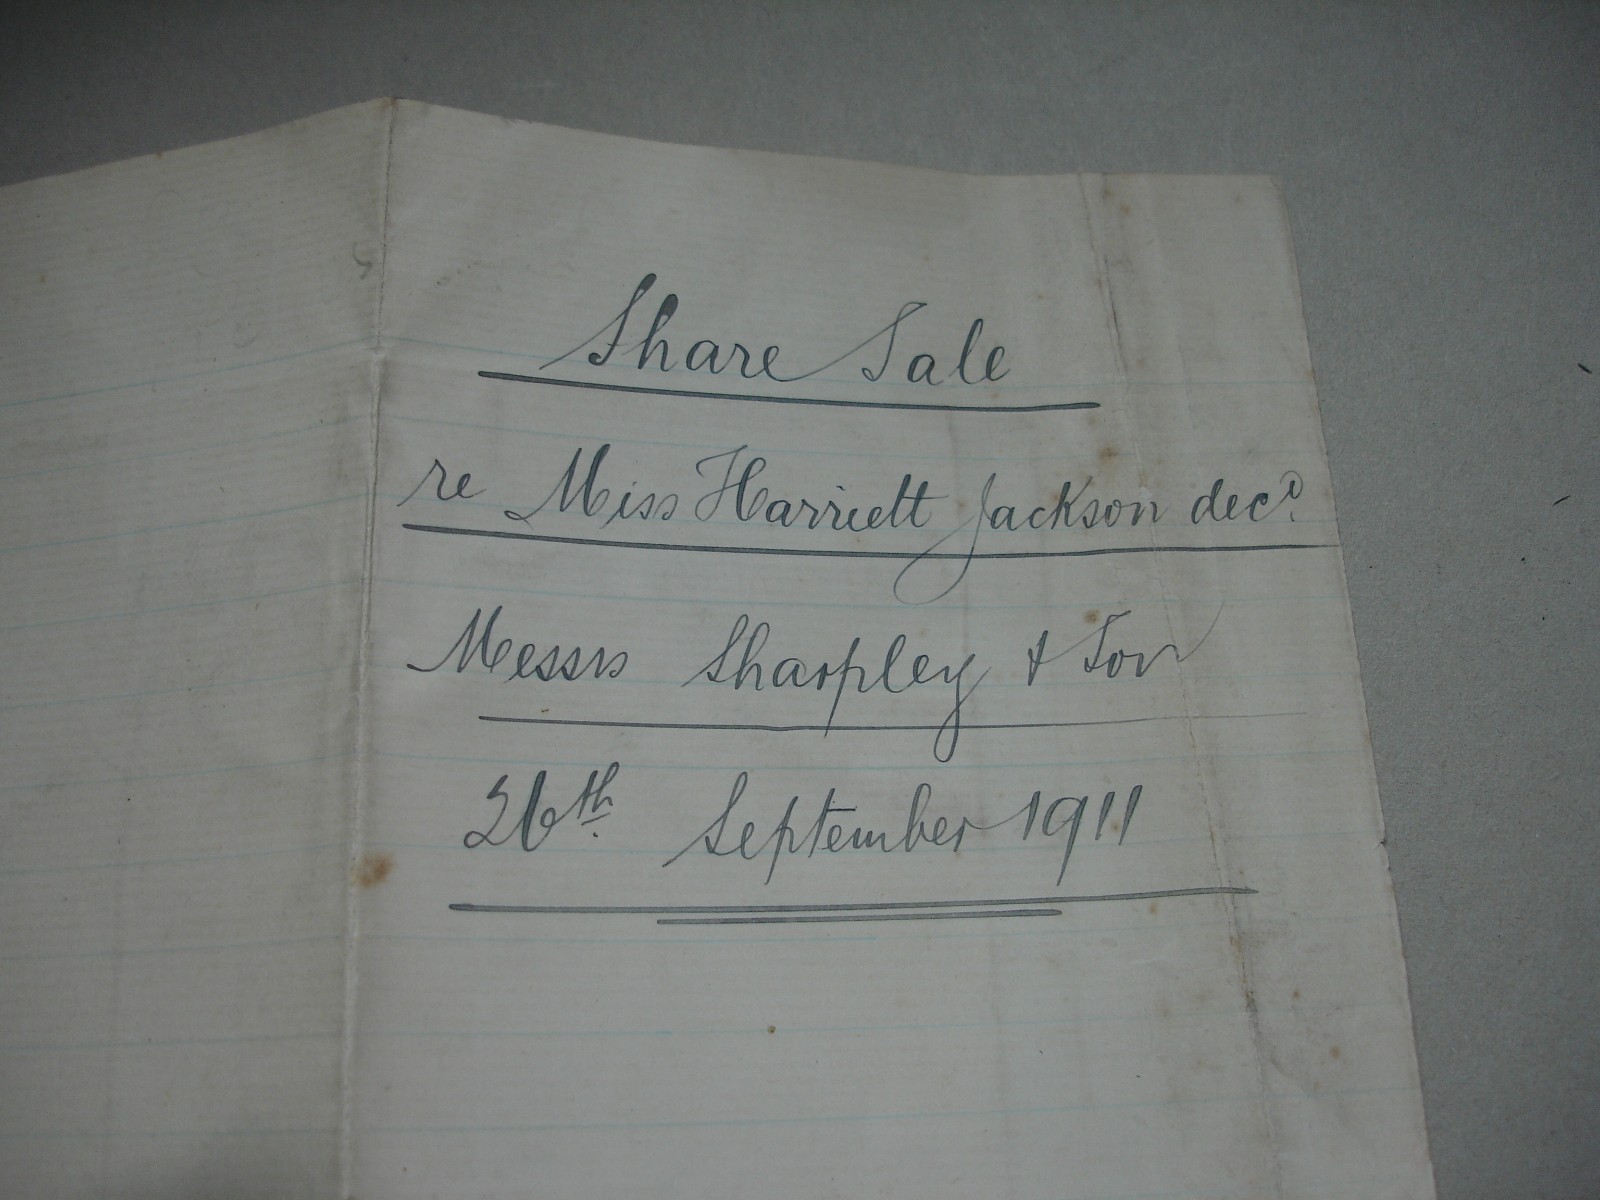 Share Sale
re Miss Harriett Jackson decd.
Messrs Sharpley & Son
26th September 1911